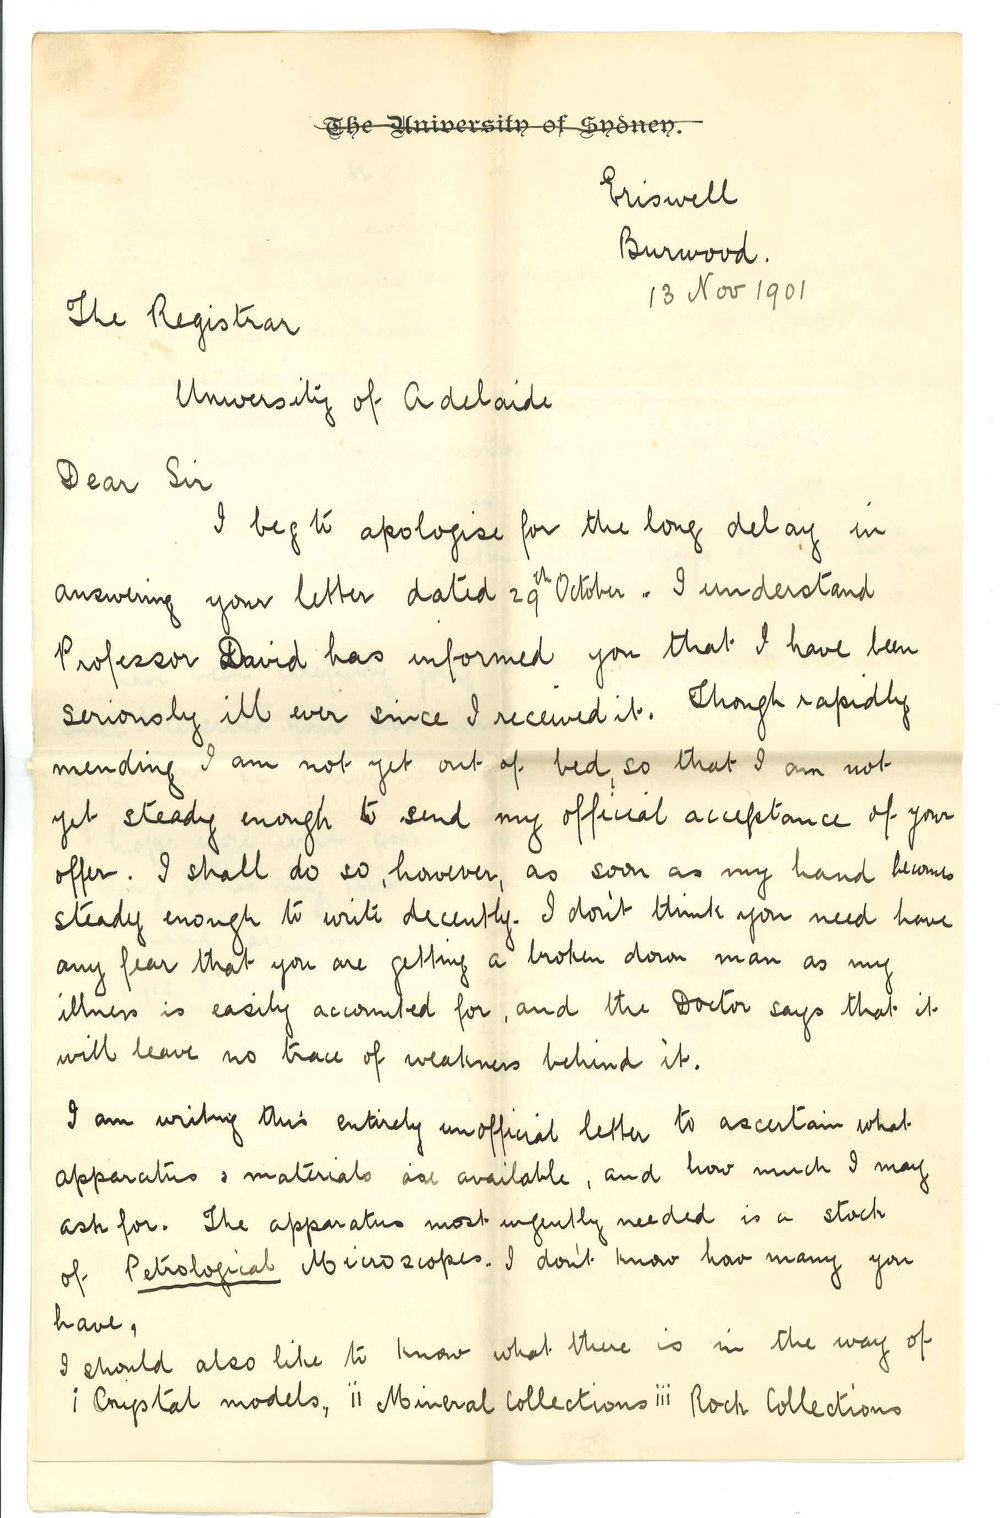 The University of Sydney.
Eriswell
Burwood.
13 Nov 1901
The Registrar
University of Adelaide
Dear Sir
I beg to apologise for the long delay in
answering your letter dated 29th October. I understand
Professor David has informed you that I have been
seriously ill ever since I received it. Though rapidly
mending I am not yet out of bed, so that I am not
yet steady enough to send my official acceptance of your
offer. I shall do so, however, as soon as my hand becomes
steady enough to write decently. I don't think you need have
any fear that you are getting a broken down man as my
illness is easily accounted for, and the Doctor says that it
will leave no trace of weakness behind it.
I am writing this entirely unofficial letter to ascertain what
apparatus & materials are available, and how much I may
ask for. The apparatus most urgently needed is a stock
of Petrological Microscopes. I don't know how many you
have,
I should also like to know what there is in the way of
i Crystal models, ii Mineral Collections iii Rock Collections